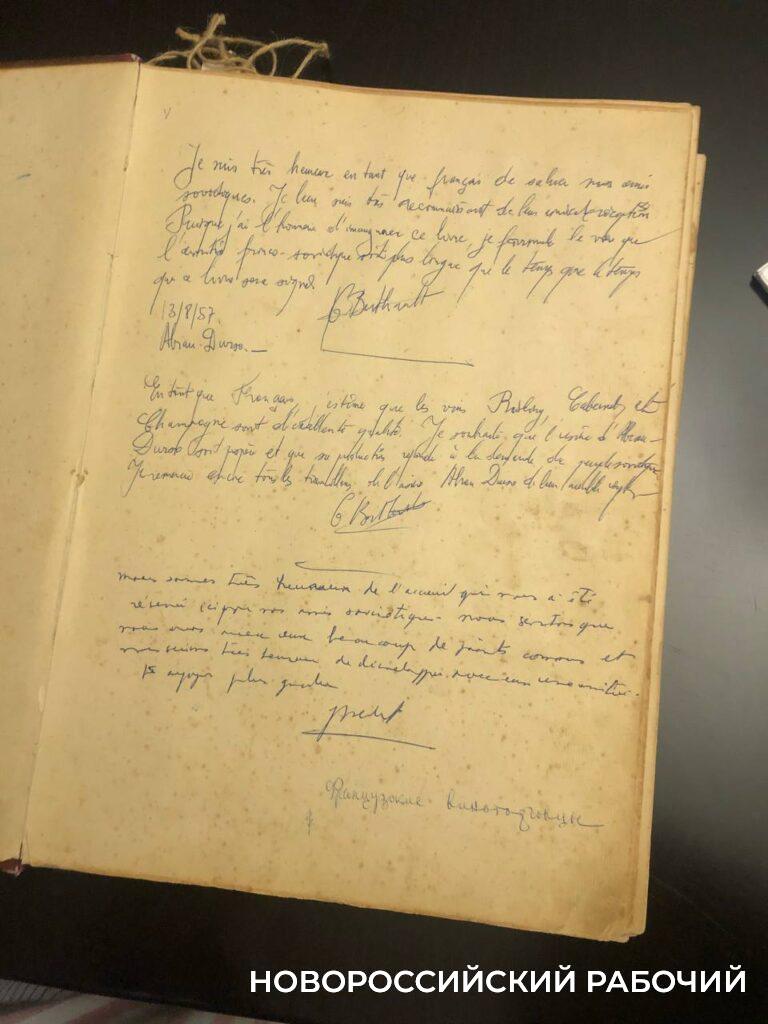 Je suis très heureux en tant que français de saluer nos amis
soviétiques. Je leur suis très reconnaissant de leur réception
Puisque j'ai l'honneur d'inaugurer ce livre, je formule le vœu que
l'amitié franco-soviétique soit plus longue que le temps que le temps
que ce livre sera signé.
13/8/57.
G. Berthault
Abrau-Durso.
En tant que Français, j'estime que les vins Riesling, Cabernet et
Champagne sont d'excellente qualité. Je souhaite que l'usine d'Abrau-
Durso soit et que sa production réponde à la demande du peuple soviétique
Je remercie encore tous les travailleurs de l'usine Abrau Durso de leur
G. Berthault
nous sommes très heureux de l'accueil qui nous a été
réservé ici par nos amis soviétiques. nous sentons que
nous avons avec eux beaucoup de points communs et
nous serions très heureux de développer avec eux une amitié
plus grande
Французские виноторговцы
НОВОРОССИЙСКИЙ РАБОЧИЙ